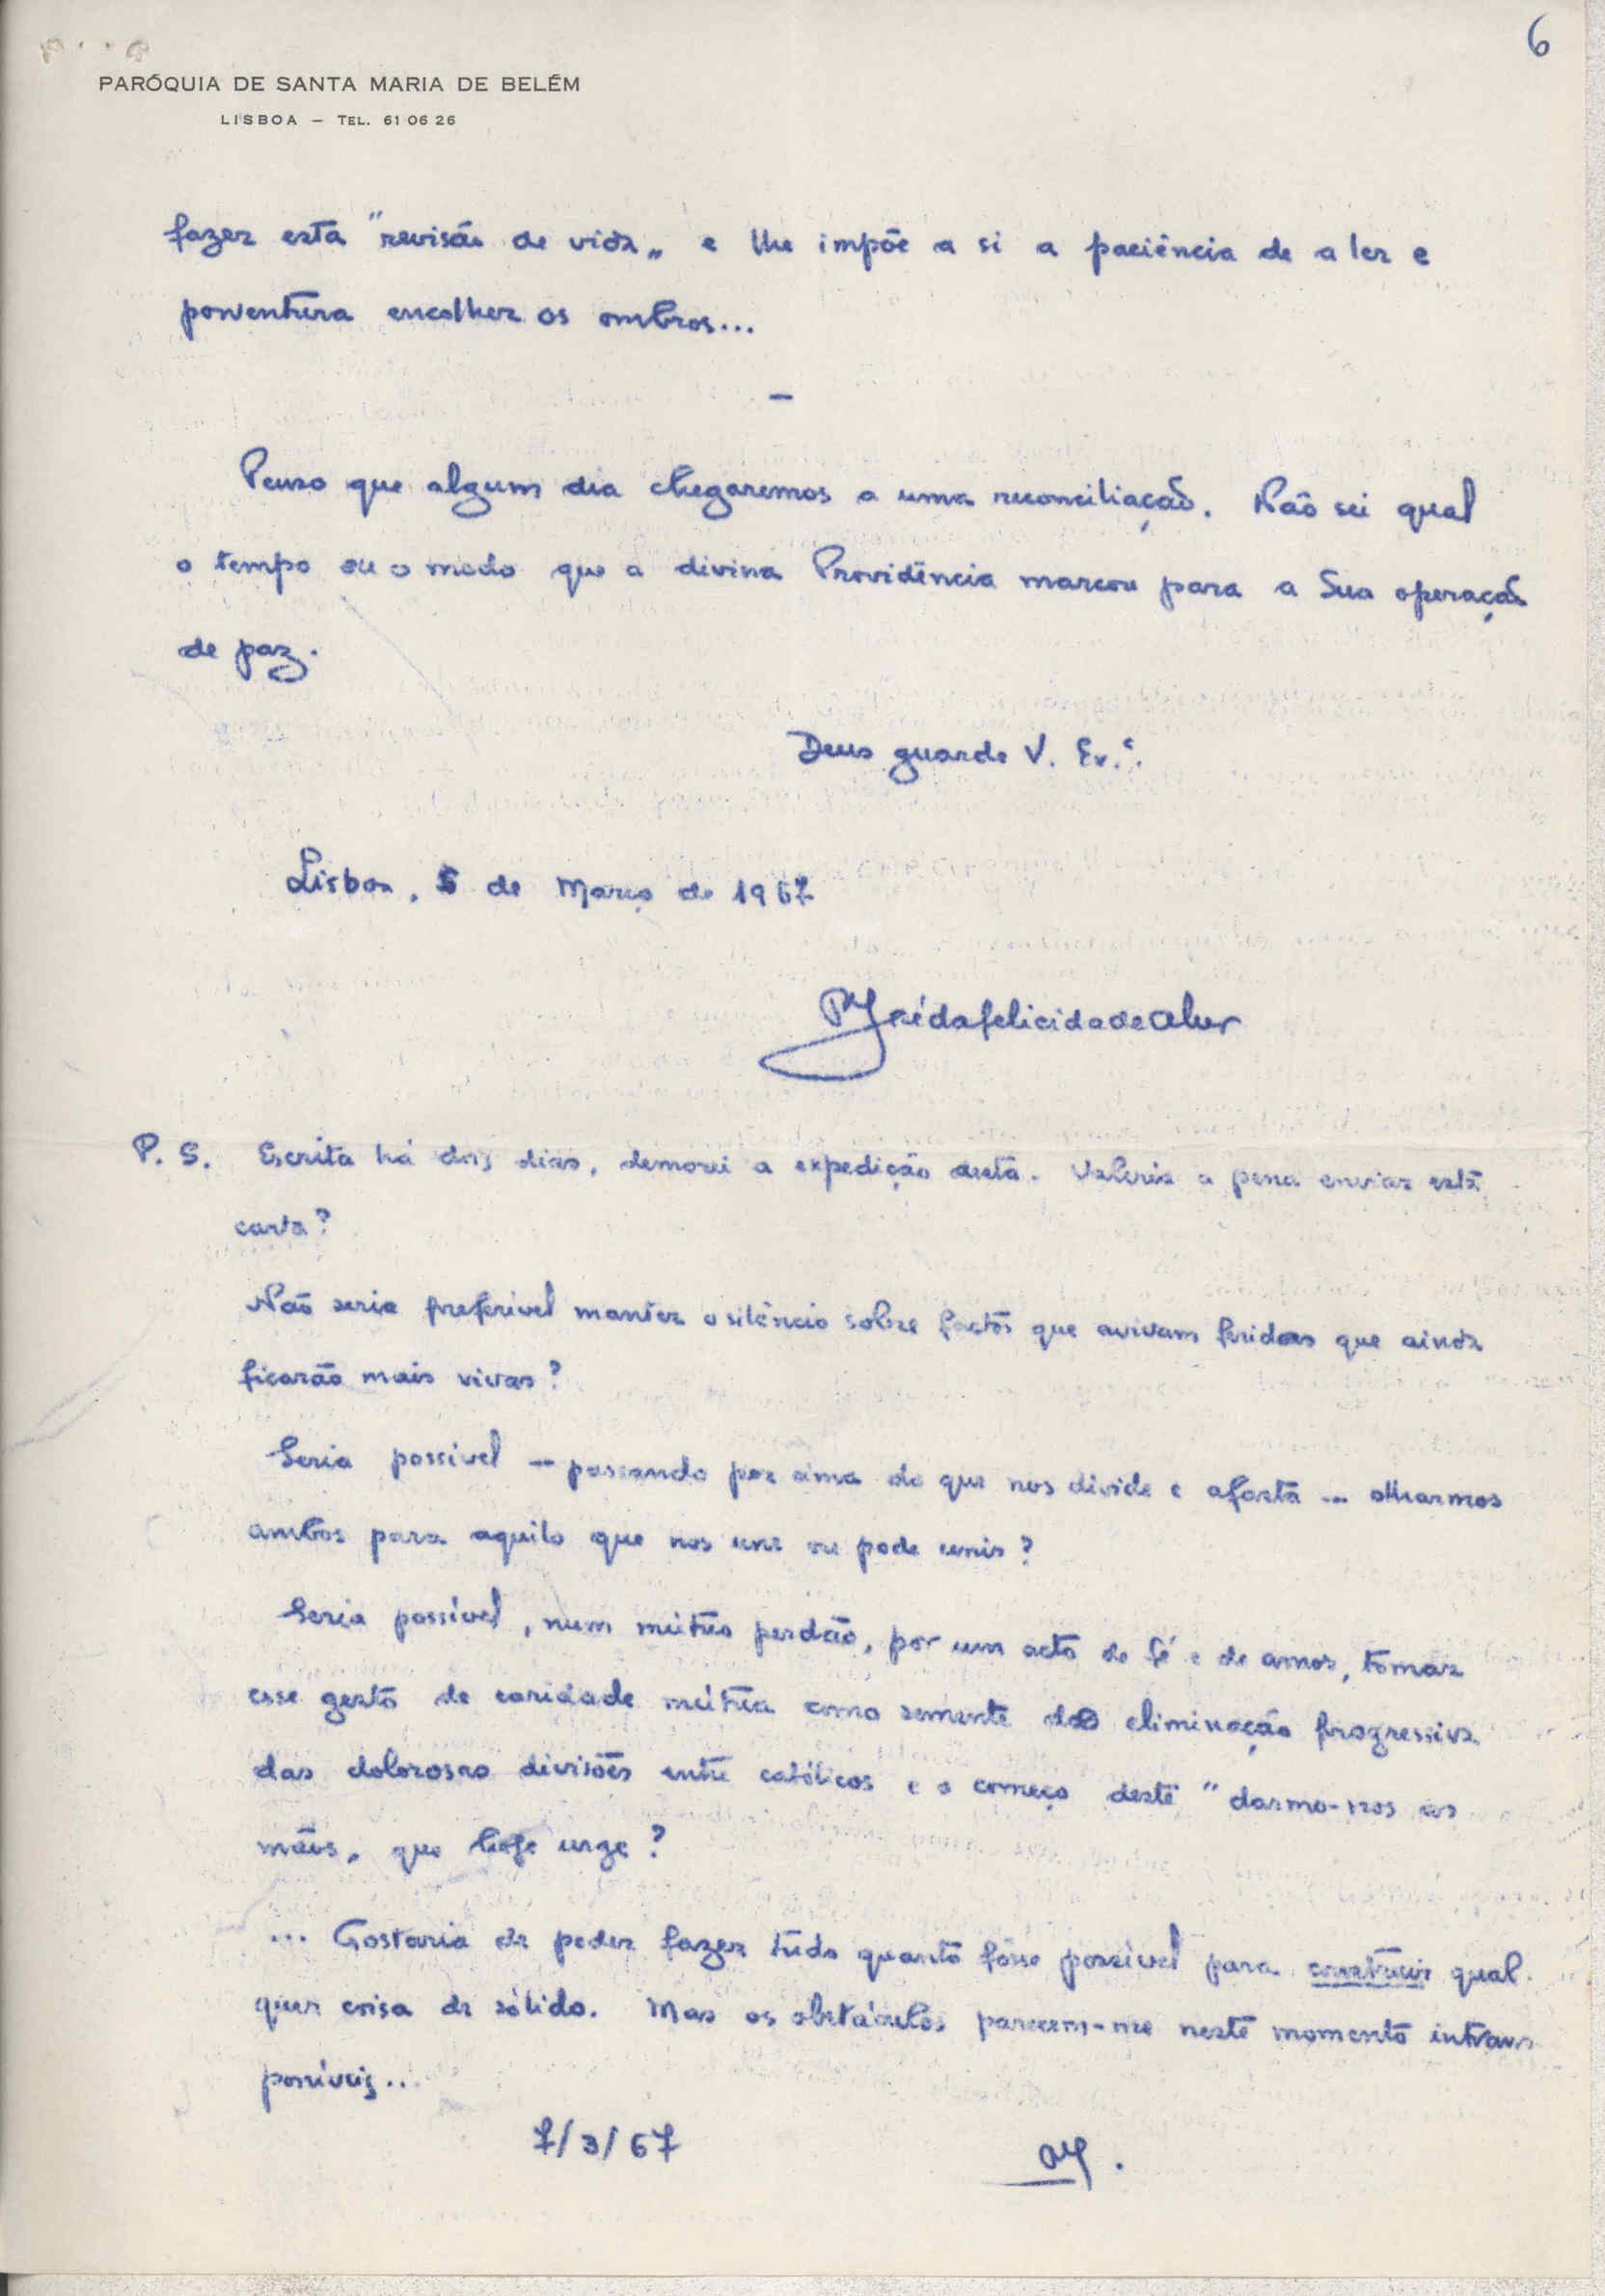 6
PARÓQUIA DE SANTA MARIA DE BELÉM
LISBOA — TEL. 61 06 26
fazer esta "revisão de vida„ e lhe impõe a si a paciência de a ler e
porventura encolher os ombros...
—
Penso que algum dia chegaremos a uma reconciliação. Não sei qual
o tempo ou o modo que a divina Providência marcou para a Sua operação
de paz.
Deus guarde V. Ex.ª.
Lisboa, 5 de Março de 1967
P.e José da felicidade alves
P. S. Escrita há dois dias, demorei a expedição desta. Valeria a pena enviar esta
carta?
Não seria preferível manter o silêncio sobre factos que avivam feridas que ainda
ficarão mais vivas?
Seria possível — passando por cima do que nos divide e afasta — olharmos
ambos para aquilo que nos une ou pode unir?
Seria possível, num mútuo perdão, por um acto de fé e de amor, tomar
esse gesto de caridade mútua como semente da eliminação progressiva
das dolorosas divisões entre católicos e o começo deste "darmo-nos as
mãos„ que hoje urge?
... Gostaria de poder fazer tudo quanto fôsse possível para construir qual-
quer coisa de sólido. Mas os obstáculos parecem-me neste momento intrans
poníveis...
7/3/67